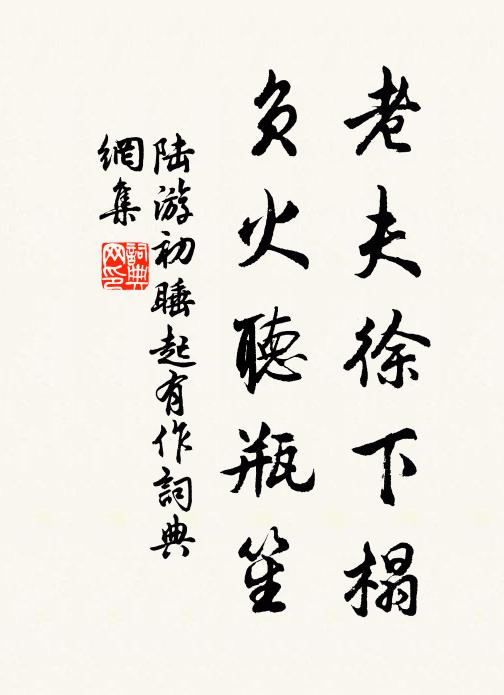 老夫徐下榻
負火聽瓶笙
陸游初睡起有作詞典
網集
詞典
网印